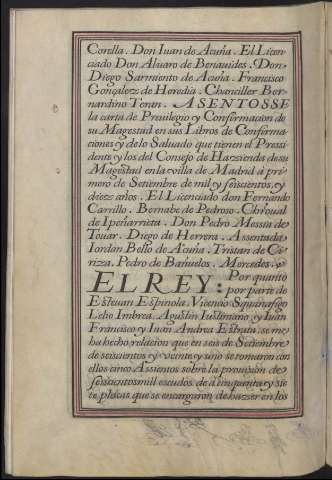 Corella. Don Iuan de Acuña. El Licen-
ciado Don Aluaro de Benauides. Don
Diego Sarmiento de Acuña. Francisco
Gonçalez de Heredia. Chanciller Ber-
nardino Teran. ASENTOSSE
la carta de Preuilegio y Confirmacion de
su Magestad en sus Libros de Confirma-
ciones y de lo Saluado que tienen el Pressi-
dente y los del Consejo de Haszienda de su
Magestad en la villa de Madrid a pri-
mero de Setiembre de mil y seiscientos, y
diez años. El Licenciado don Fernando
Carrillo. Bernabe de Pedroso. Chrôual
de Ipeñarrieta. Don Pedro Messia de
Touar. Diego de Herrera. Assentada
Iordan Bello de Acuña. Tristan de Ci-
riza. Pedro de Bañuelos. Mercedes. y
EL REY: Por quanto
por parte de
Esteuan Espinola. Vicencio Squinafigo
Lelio Imbrea. Agustin Iustiniano, y Iuan
Francisco y Iuan Andrea
se me
ha hecho relacion que en seis de Deciembre
de seiscientos y veinte y uno se tomaron con
ellos cinco Assientos sobre la prouision de
mill escudos de a cinquenta y sie
te placas que se encargaron de hazser en los